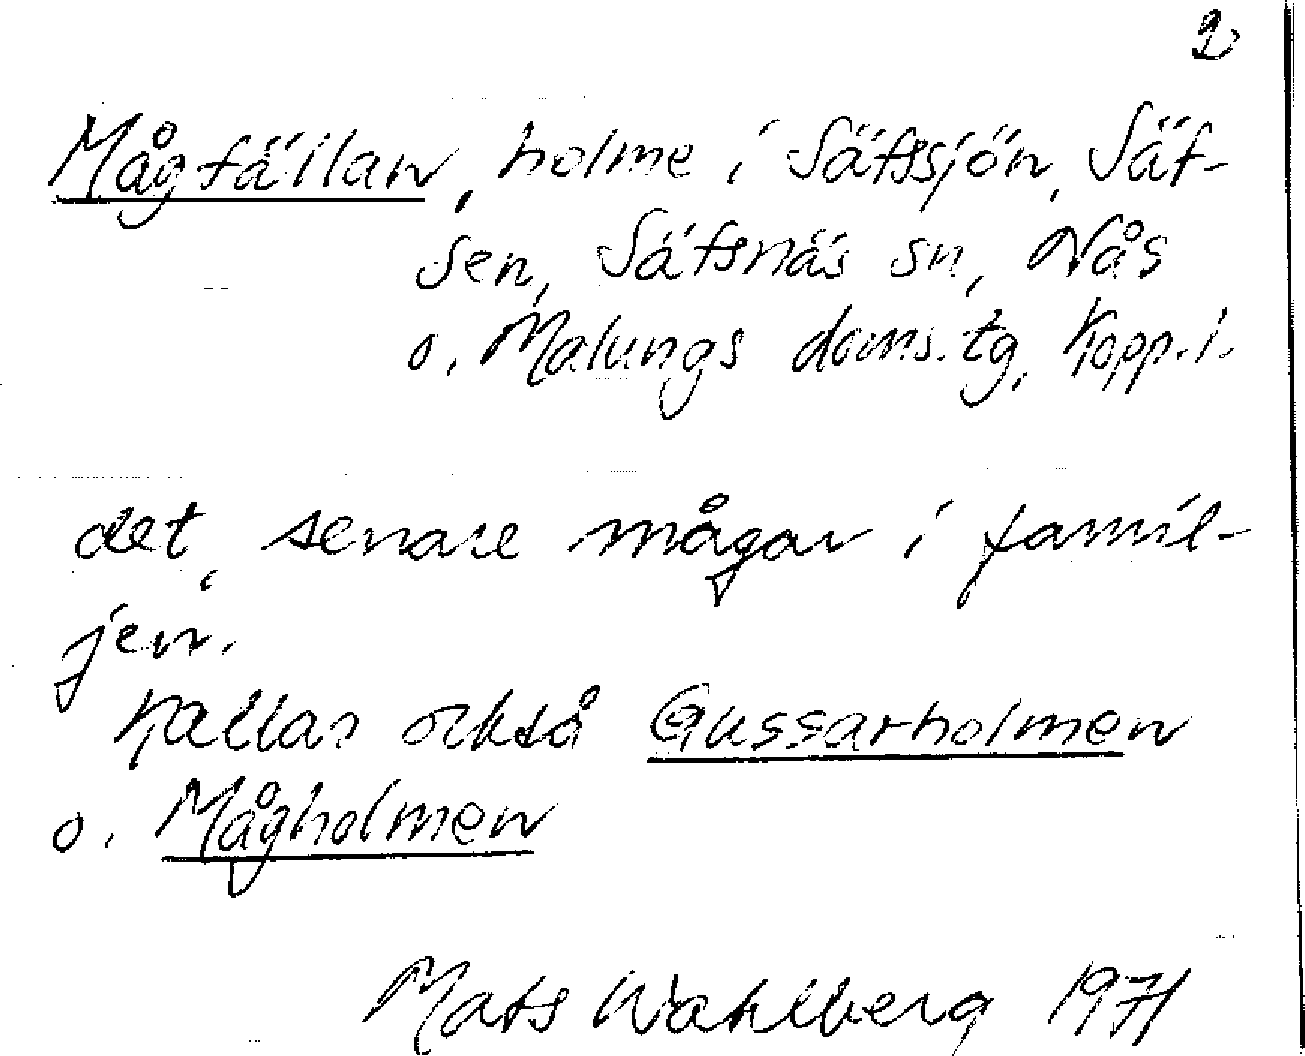 2
Mågfällan, holme i Säfssjön, Säf-
sen, Säfsnäs sn, Nås
o. Malungs doms.tg, Kopp.l.
det, senare mågar i famil-
jen.
Kallas också Gussarholmen
o. Mågholmen
Mats Wahlberg 1971